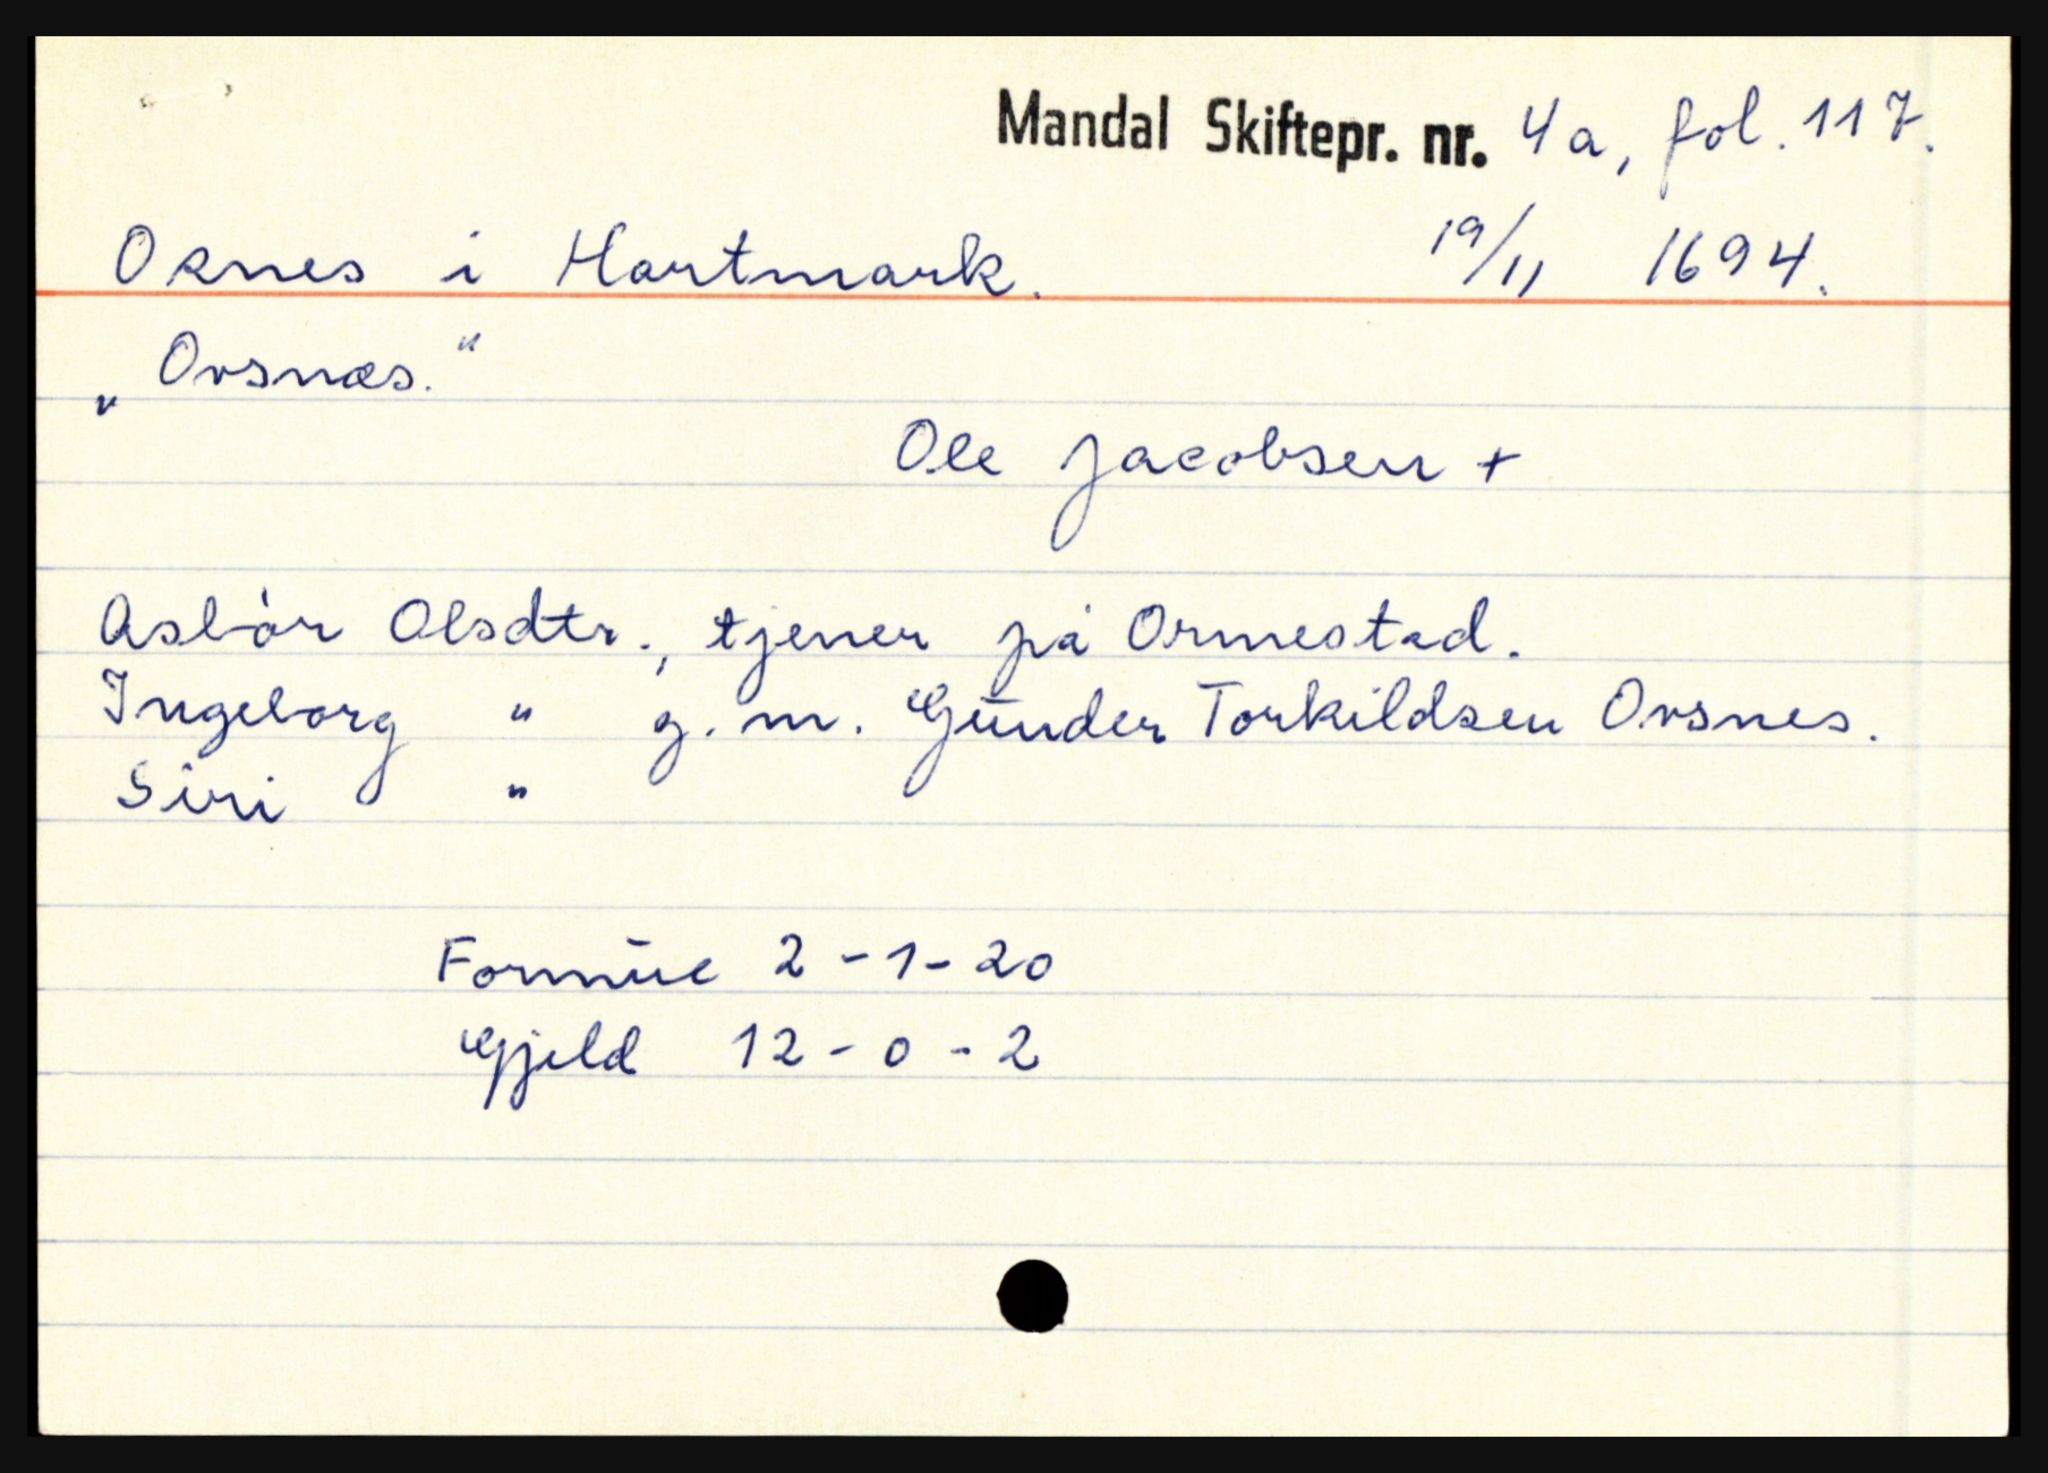 Mandal Skiftepr. nr. 4a, fol. 117.
Oksnes i Hartmark. 19/11 1694.
„Orsnæs."
Ole Jacobsen +
Asbòr Olsdtr., tjener på Ormestad.
Ingeborg " g. m. Gunder Torkildsen Orsnes.
Siri "
Formue 2-1-20
Gjeld 12-0-2